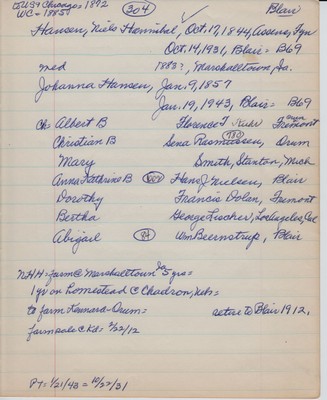 to US + Chicago = 1872 (304) Blair
WC = 1885?
Hansen, Niels Hannibal, Oct. 17, 1844, Assens, Fyn
Oct. 14, 1931, Blair = B69
med 1883?, Marshalltown, Ia.
Johanna Hansen, Jan. 9, 1857
Jan. 19, 1943, Blair = B69
Ch = Albert B Florence T Kuhr Fremont
Christian B Sena Rasmussen, (780) Orum
Mary Smith, Stanton, Mich
Anna Kathrine B Hans J Nielsen, Blair
Dorothy Francis Dolan, Fremont
Bertha George Fischer, Los Angeles, Cal
Abigail (84) Wm Beernstrup, Blair
NHH = farm @ Marshalltown Ia 5 yrs =
1 yr on homestead @ Chadron, Nebr =
to farm Kennard-Orum = retire to Blair 1912,
farm sale ckd = 2/22/12
PT = 1/21/43 = 10/27/31